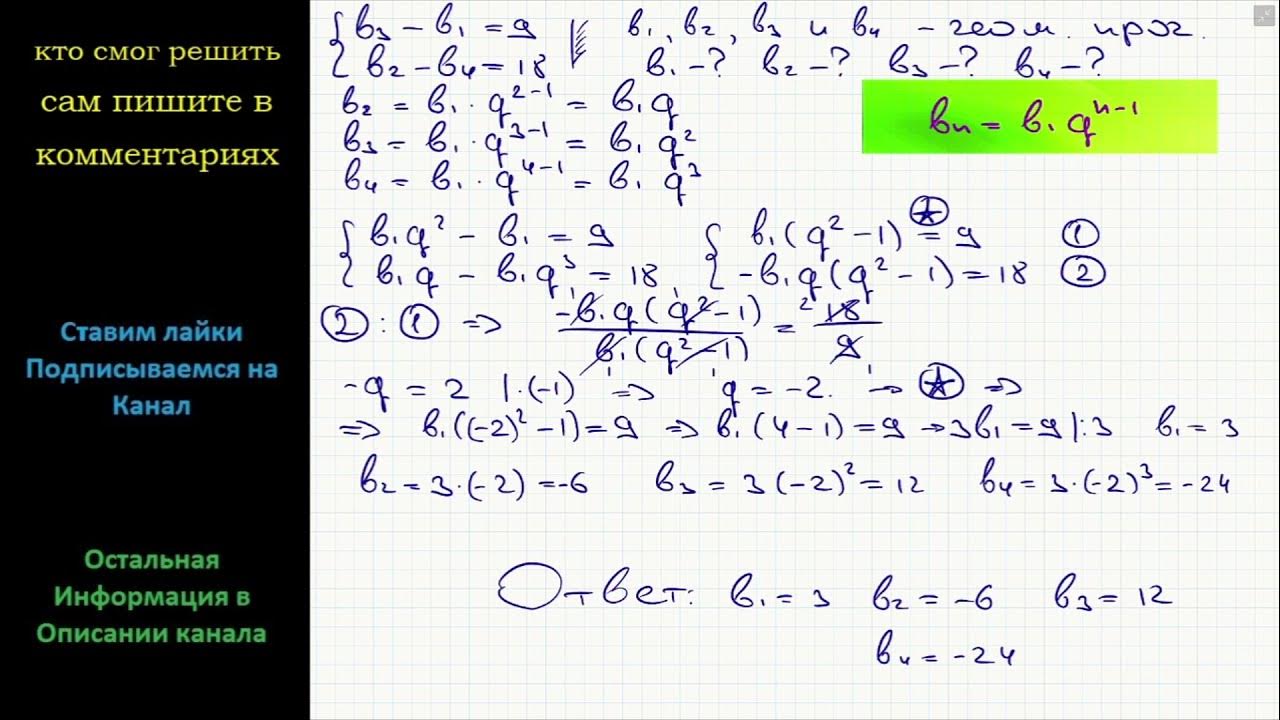 кто смог решить
сам пишите в
комментариях
Ставим лайки
Подписываемся на
Канал
Остальная
Информация в
Описании канала
{ в₃ − в₁ = 9
{ в₂ − в₄ = 18
в₁, в₂, в₃ и в₄ − геом. прог.
в₁ −? в₂ −? в₃ −? в₄ −?
вₙ = в₁ qⁿ⁻¹
в₂ = в₁ · q²⁻¹ = в₁ q
в₃ = в₁ · q³⁻¹ = в₁ q²
в₄ = в₁ · q⁴⁻¹ = в₁ q³
{ в₁q² − в₁ = 9
{ в₁q − в₁q³ = 18
{ в₁(q² − 1) = 9 ①
{ −в₁q(q² − 1) = 18 ②
② : ① => −в₁q(q² − 1) / в₁(q² − 1) = 18 / 9
−q = 2 |·(−1) => q = −2. → ★ =>
=> в₁((−2)² − 1) = 9 => в₁(4 − 1) = 9 → 3в₁ = 9 |:3 в₁ = 3
в₂ = 3·(−2) = −6 в₃ = 3(−2)² = 12 в₄ = 3·(−2)³ = −24
Ответ: в₁ = 3 в₂ = −6 в₃ = 12
в₄ = −24